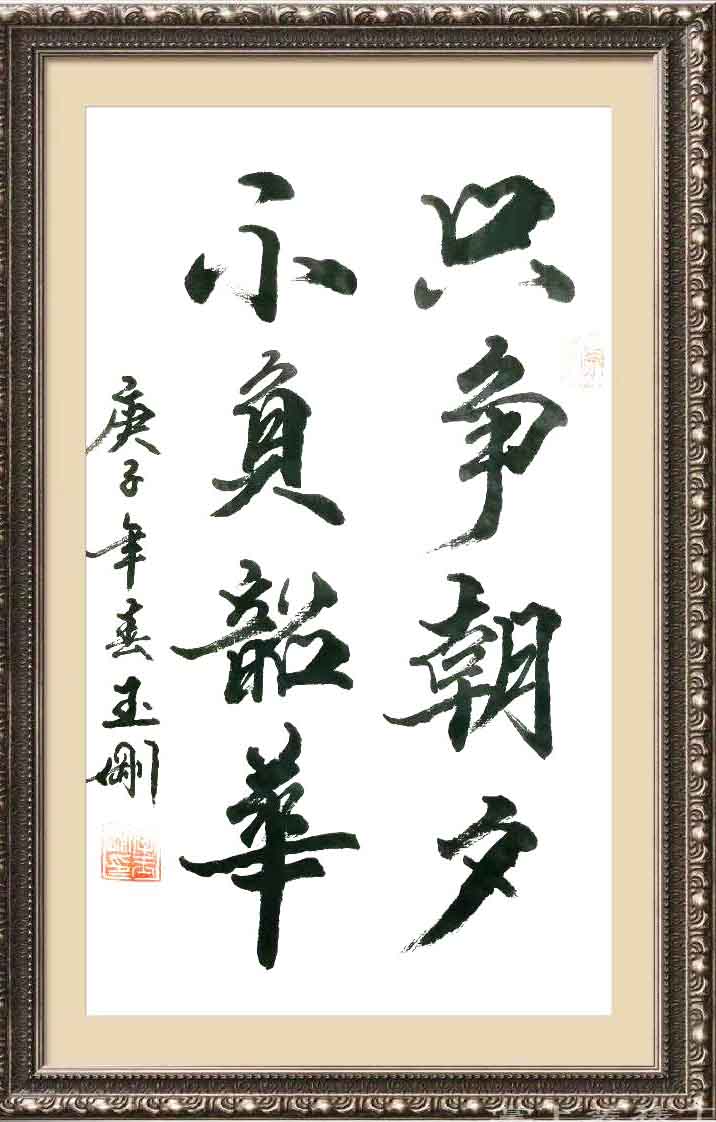 只争朝夕
不负韶華
庚子年春玉刚